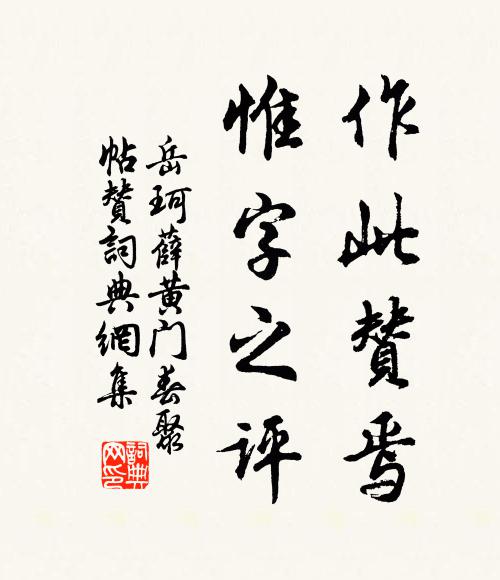 作此賛焉
惟字之評
岳珂薛黄门春聚
帖賛詞典網集
詞典网印